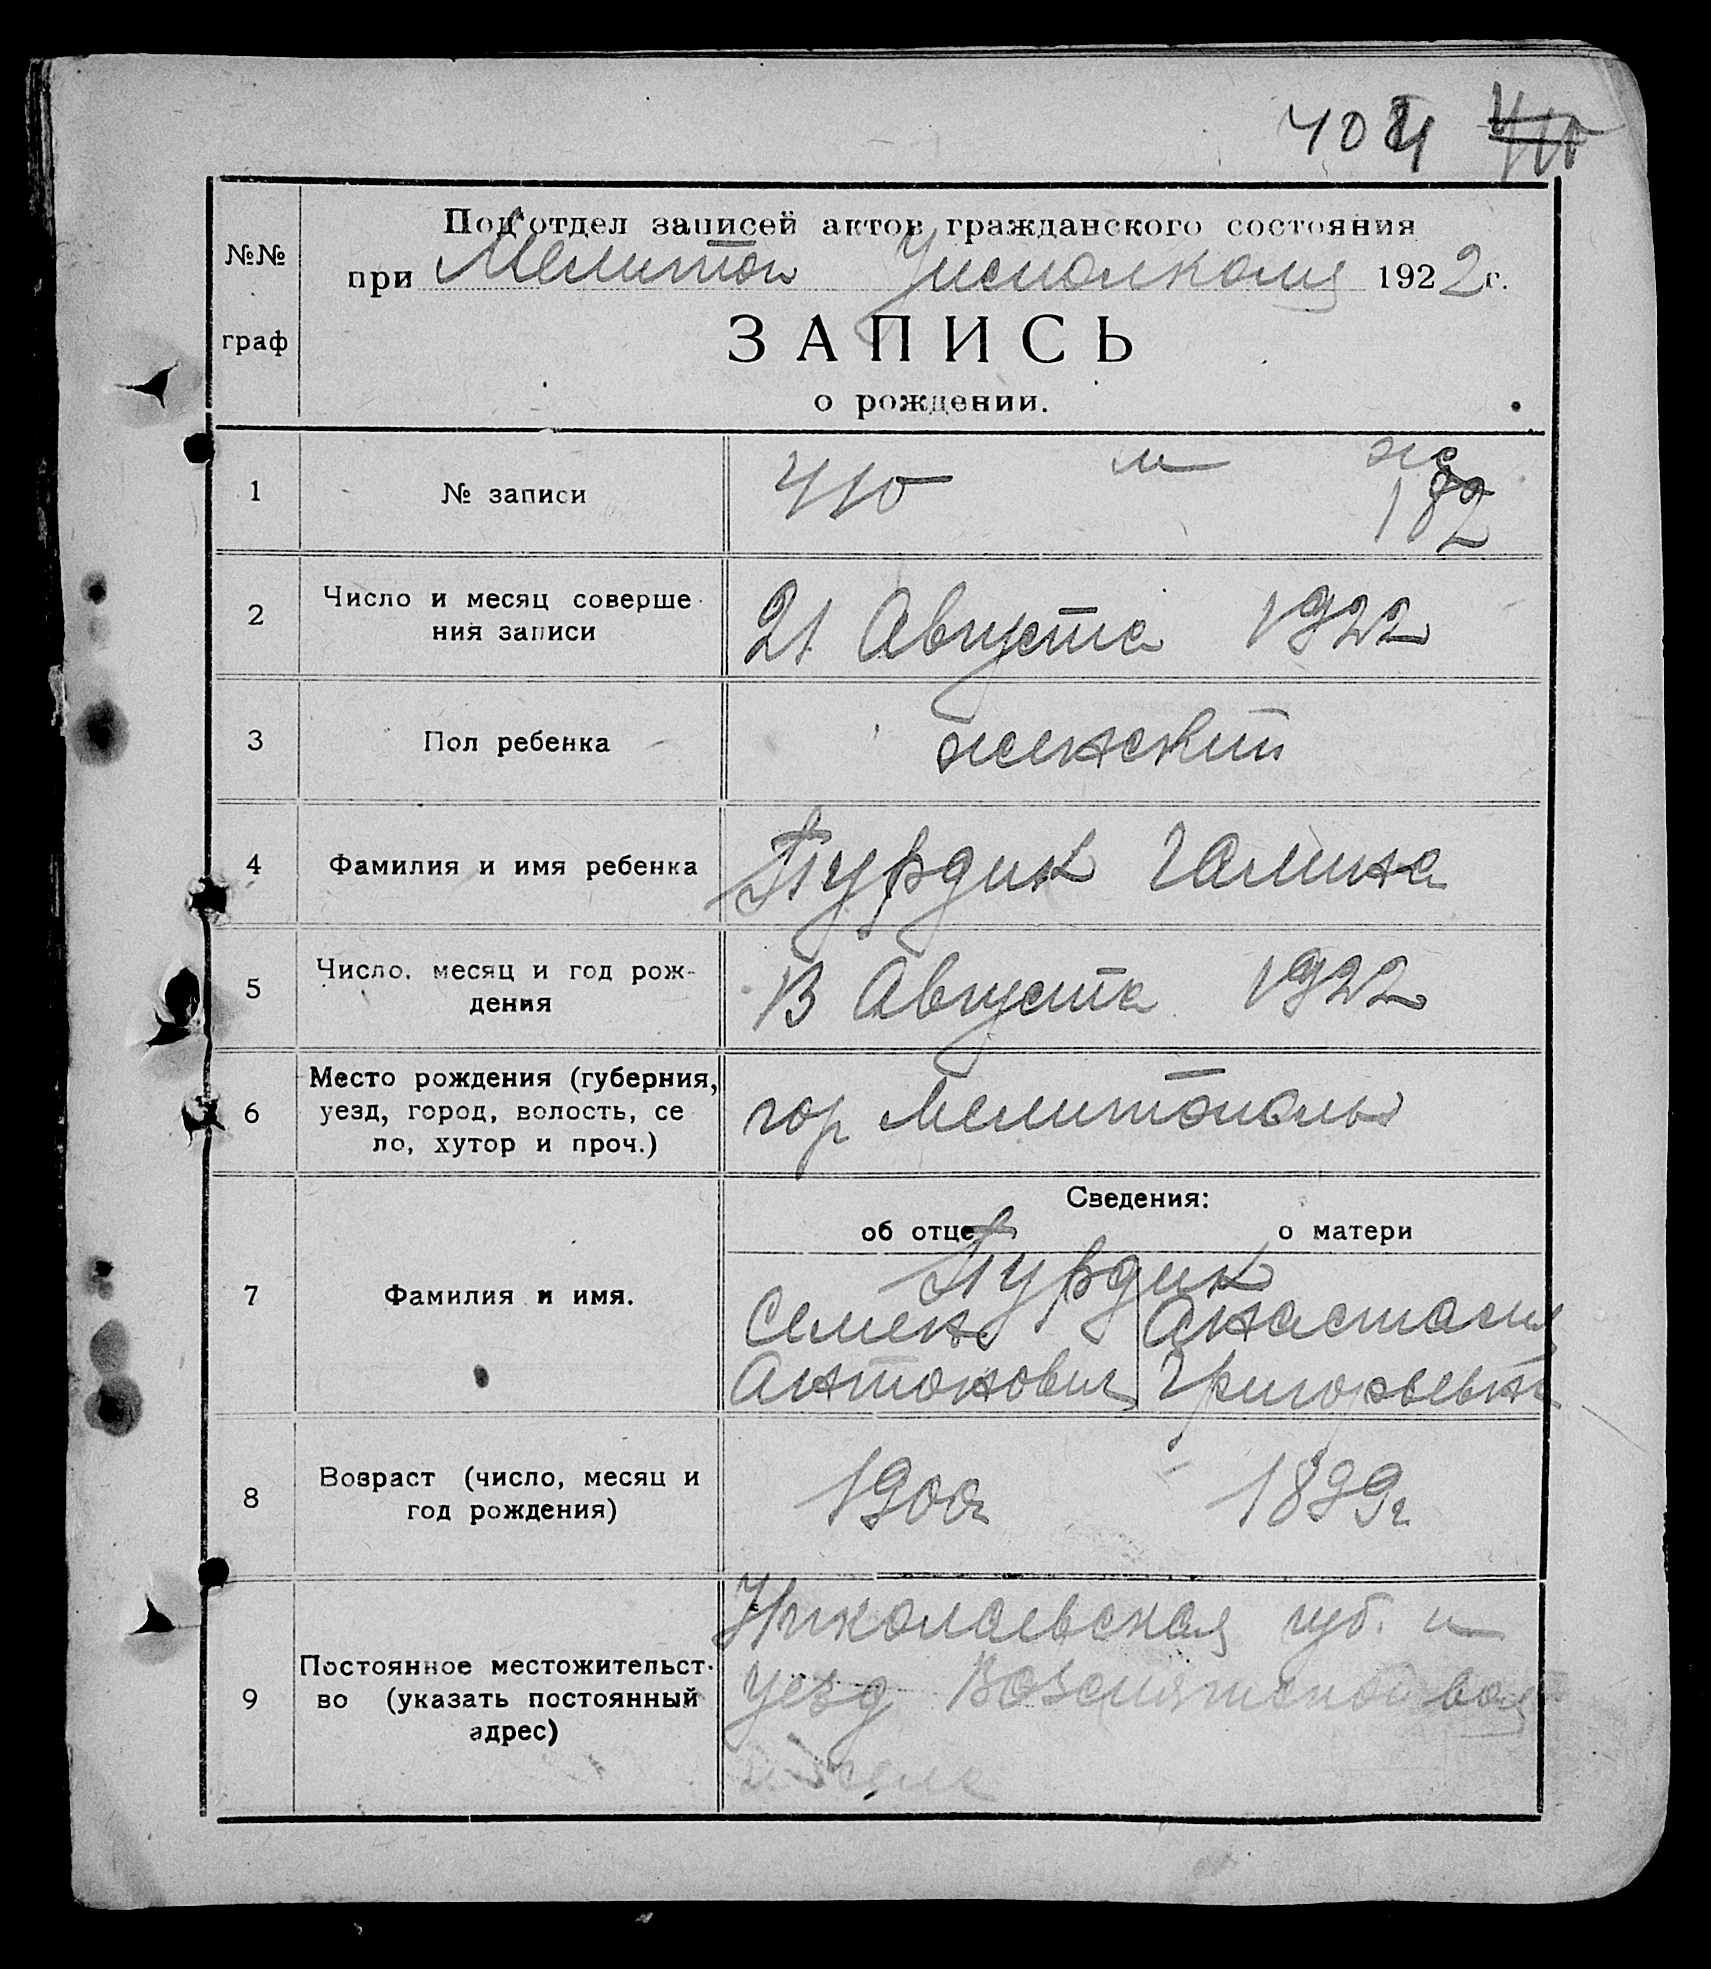 404 410
Под'отдел записей актов гражданского состояния
№№
при Мелитоп Уисполкома 1922 г.
граф
ЗАПИСЬ
о рождении.
1 № записи 410 м ж
182
2 Число и месяц соверше
ния записи
21 Августа 1922
3 Пол ребенка женский
4 Фамилия и имя ребенка Пурдик Галина
5 Число, месяц и год рож-
дения
13 Августа 1922
6 Место рождения (губерния,
уезд, город, волость, се
ло, хутор и проч.)
гор Мелитополь
Сведения:
об отце о матери
7 Фамилия и имя.
Пурдик
Семен Анастасия
Антонович Григорьевна
8 Возраст (число, месяц и
год рождения)
1900г 1899г
9 Постоянное местожительст-
во (указать постоянный
адрес)
Николаевская губ. и
уезд Вознятской вол